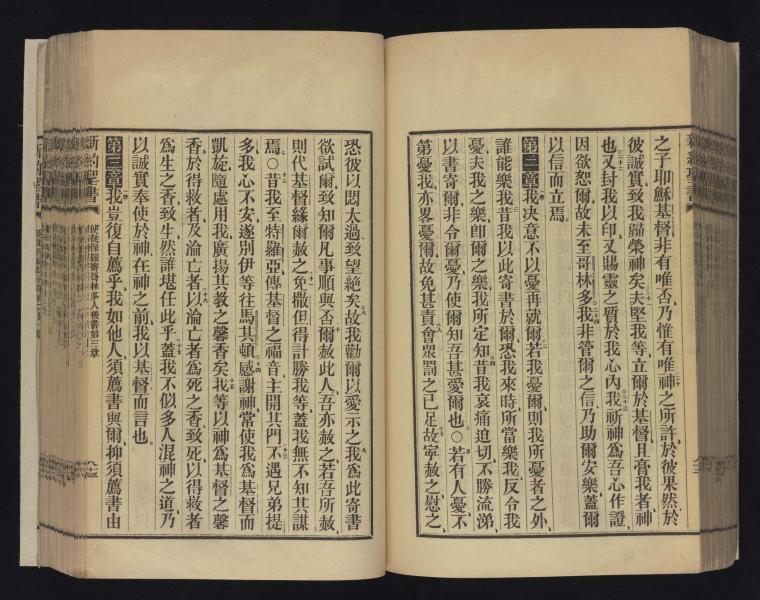 之子耶穌基督非有唯否乃惟有唯神之所許於彼果然於
彼誠實致我歸榮神矣夫堅我等立爾於基督且膏我者神
也又封我以印又賜靈之質於我心內我祈神爲吾心作證
因欲恕爾故未至哥林多我非管爾之信乃助爾安樂蓋爾
以信而立焉
第二章我決意不以憂再就爾若我憂爾則我所憂者之外
誰能樂我昔我以此寄書於爾恐我來時所當樂我反令我
憂夫我之樂卽爾之樂我所定知昔我哀痛迫切不勝流涕
以書寄爾非令爾憂乃使爾知吾甚愛爾也○若有人憂不
第憂我亦畧憂爾故免甚責會衆罰之已足故寧赦之慰之
恐彼以悶太過致望絕矣故我勸爾以愛示之我爲此寄書
欲試爾致知爾凡事順與否爾赦此人吾亦赦之若吾所赦
則代基督緣爾赦之免撒但得計勝我等蓋我無不知其謀
焉○昔我至特羅亞傳基督之福音主開其門不遇兄弟提
多我心不安遂別伊等往馬其頓感謝神常使我爲基督而
凱旋隨處用我廣揚其教之馨香矣我等以神爲基督之馨
香於得救者及淪亡者以淪亡者爲死之香致死以得救者
爲生之香致生然誰堪任此乎蓋我不似多人混神之道乃
以誠實奉使於神在神之前我以基督而言也
第三章我豈復自薦乎我如他人須薦書與爾抑須薦書由
新約聖書 使徒保羅寄哥林多人後書第三章